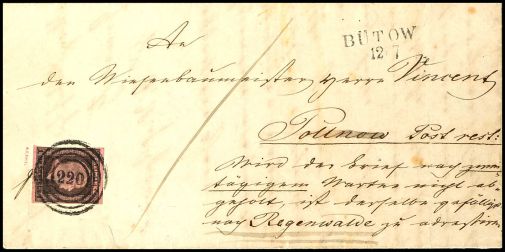 BÜTOW
12 7
An
den Wiesenbaumeister Herrn Vincent
Pollnow Post rest:
Wird der Brief nach zwei
tägigem Warten nicht ab
geholt, ist derselbe gefälligst
nach Regenwalde zu adressiren
220